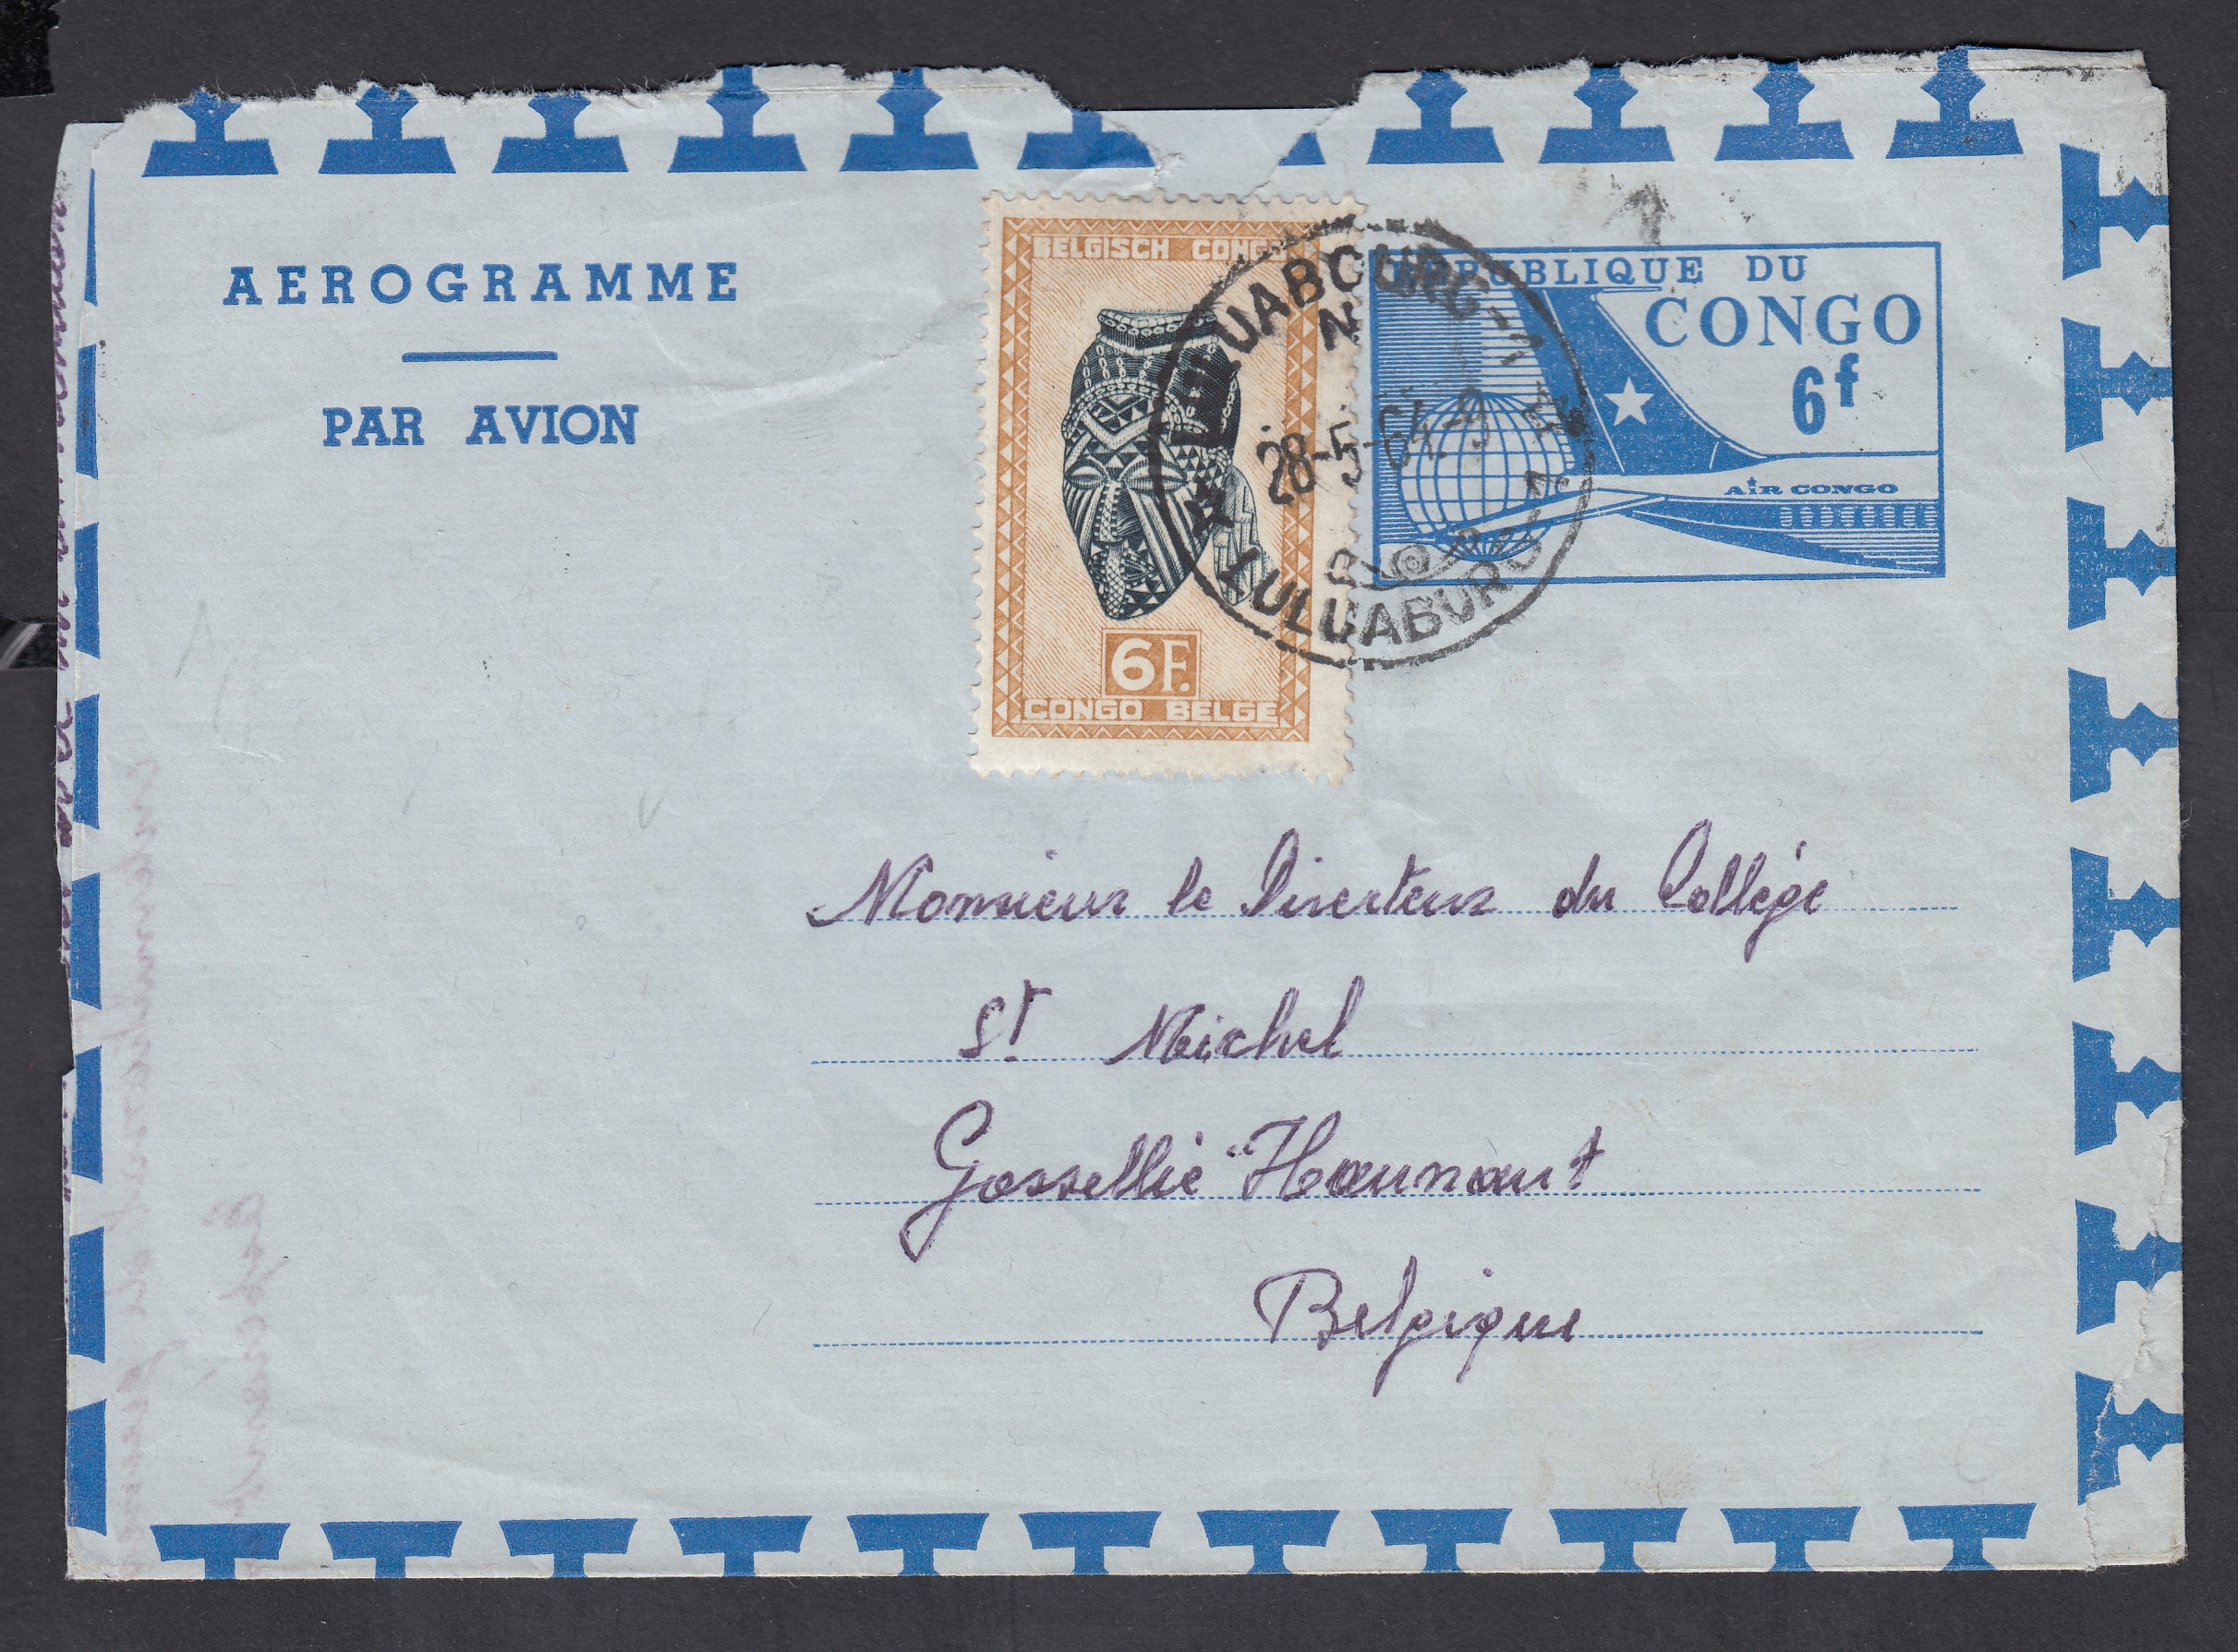 AEROGRAMME
PAR AVION
BELGISCH CONGO
6F.
CONGO BELGE
REPUBLIQUE DU
CONGO
6f
AIR CONGO
LULUABOURG-1
28-5-64-9
LULUABURG-1
Monsieur le Directeur du Collège
St Michel
Gossellie "Haunaut
Belgique